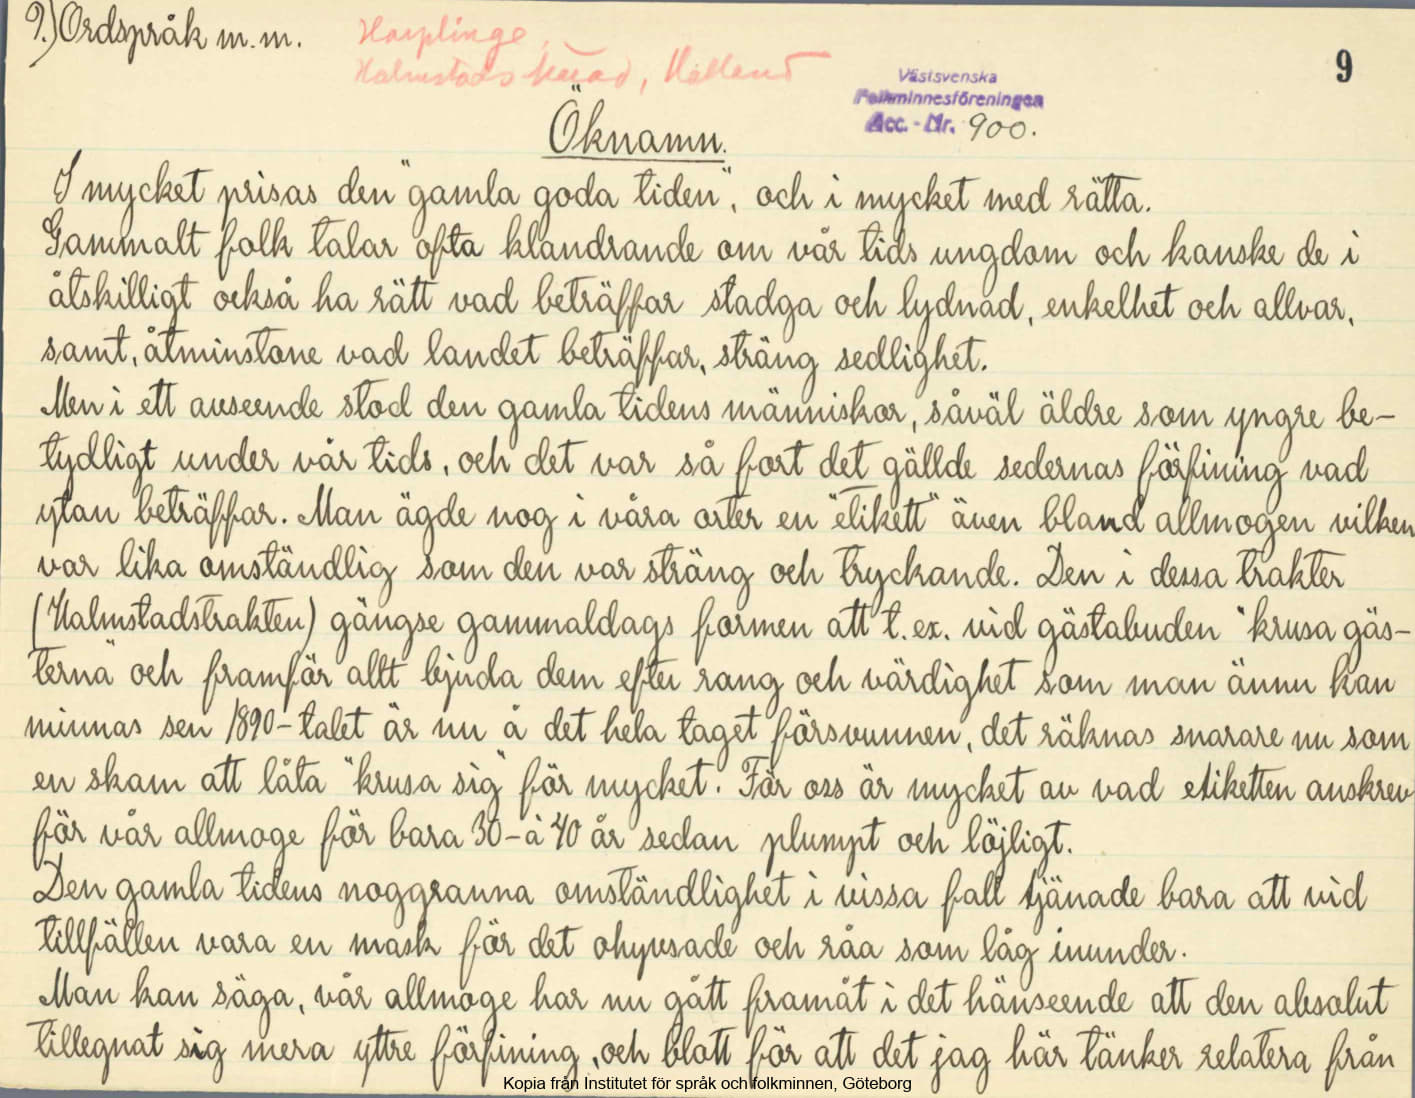 9.) Ordspråk m.m.
Harplinge,
Halmstads härad, Halland
9
Västsvenska
Folkminnesföreningen
Acc. - Nr. 900.
Öknamn.
I mycket prisas den "gamla goda tiden", och i mycket med rätta.
Gammalt folk talar ofta klandrande om vår tids ungdom och kanske de i
åtskilligt också ha rätt vad beträffar stadga och lydnad, enkelhet och allvar,
samt, åtminstone vad landet beträffar, sträng sedlighet.
Men i ett avseende stod den gamla tidens människor, såväl äldre som yngre be-
tydligt under vår tids, och det var så fort det gällde sedernas förfining vad
ytan beträffar. Man ägde nog i våra orter en "etikett" även bland allmogen vilken
var lika omständlig som den var sträng och tryckande. Den i dessa trakter
(Halmstadstrakten) gängse gammaldags formen att t.ex. vid gästabuden "krusa gäs-
terna" och framför allt bjuda dem efter rang och värdighet som man ännu kan
minnas sen 1890-talet är nu å det hela taget försvunnen, det räknas snarare nu som
en skam att låta "krusa sig" för mycket. För oss är mycket av vad etiketten anskrev
för vår allmoge för bara 30- à 40 år sedan plumpt och löjligt.
Den gamla tidens noggranna omständlighet i vissa fall tjänade bara att vid
tillfällen vara en mask för det ohyvsade och råa som låg inunder.
Man kan säga, vår allmoge har nu gått framåt i det hänseende att den absolut
tillegnat sig mera yttre förfining, och blott för att det jag här tänker relatera från
Kopia från Institutet för språk och folkminnen, Göteborg